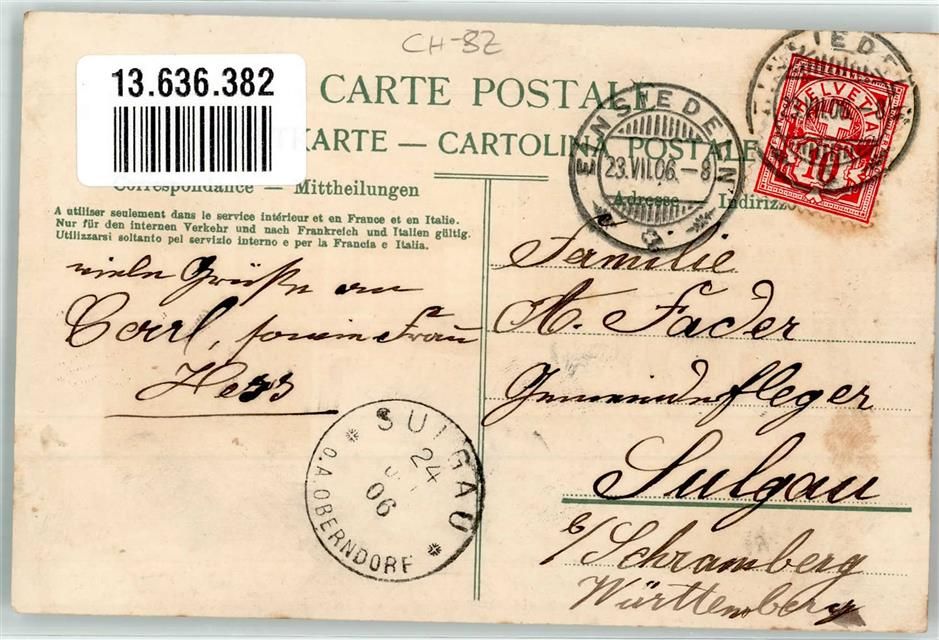 CH-BZ
13.636.382
CARTE POSTALE
KARTE — CARTOLINA POSTALE
Correspondance — Mittheilungen
Adresse — Indirizzo
A utiliser seulement dans le service intérieur et en France et en Italie.
Nur für den internen Verkehr und nach Frankreich und Italien gültig.
Utilizzarsi soltanto pel servizio interno e per la Francia e Italia.
EINSIEDELN
23.VII.06.–8
HELVETIA
10
viele Grüße an
Carl, sowie Frau
Hess
Familie
A. Fader
Gemeindepfleger
Sulgau
b/ Schramberg
Württemberg
SULGAU
24
06
O.A.OBERNDORF